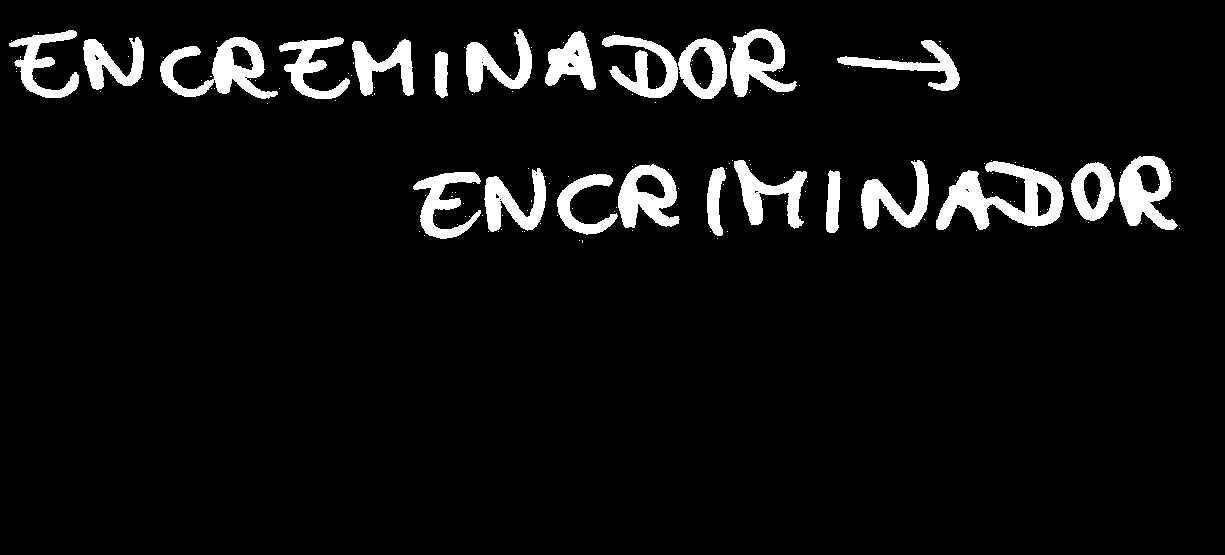 ENCREMINADOR →
ENCRIMINADOR